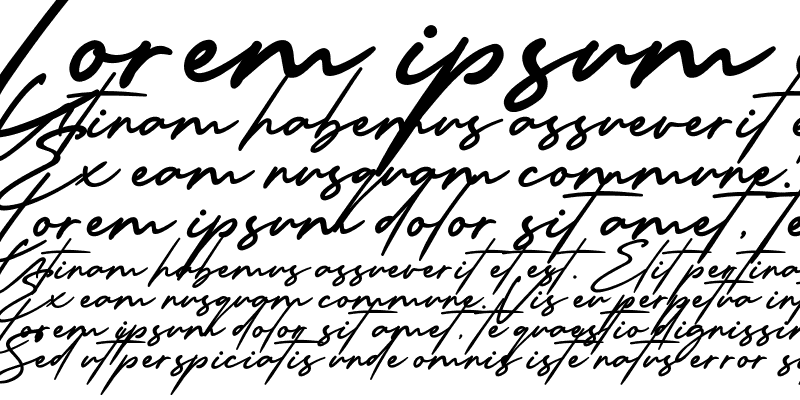 Lorem ipsum
Etinam habemus assueverit
Ex eam nusquam commune.
Lorem ipsum dolor sit amet, te
Etinam habemus assueverit et est. Elit pertina
Ex eam nusquam commune. Vis eu perpetua in
Lorem ipsum dolor sit amet, te quaestio dignissim
Sed ut perspiciatis unde omnis iste natus error s